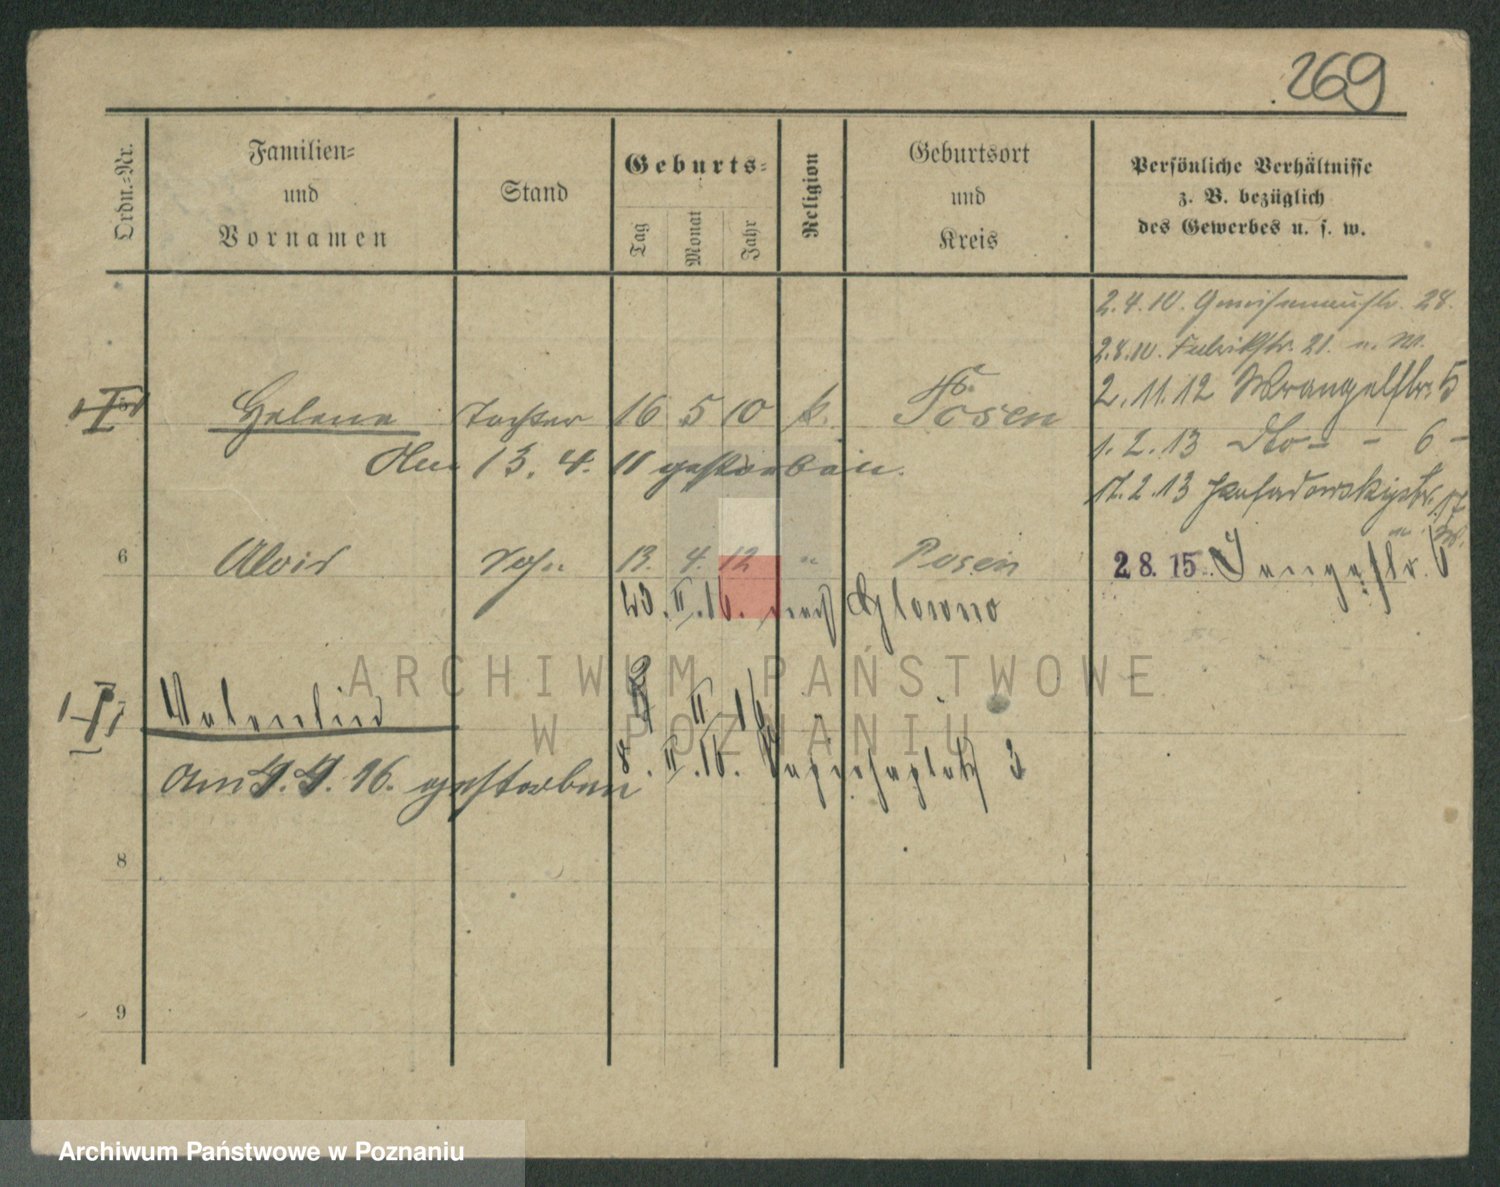 269
Ordn.-Nr.
Familien-
und
Vornamen
Stand
Geburts-
Tag
Monat
Jahr
Religion
Geburtsort
und
Kreis
Persönliche Verhältnisse
z. B. bezüglich
des Gewerbes u. s. w.
2.4.10. Gneisenaustr. 28.
2.8.10. Fabrikstr. 21.
2.11.12 Wrangelstr. 5
1.2.13 dto - - 6 -
17.2.13 17
28.15. 6
Helene Tochter 16 5 10 k. Posen
Am 13. 4. 11 gestorben.
6 Alois Sohn 13. 4. 12 " Posen
23. II. 16. nach Glowno
Valentin II 16
8. II. 16. 3
Am 9. 9. 16. gestorben
8
9
ARCHIWUM PAŃSTWOWE
W POZNANIU
Archiwum Państwowe w Poznaniu